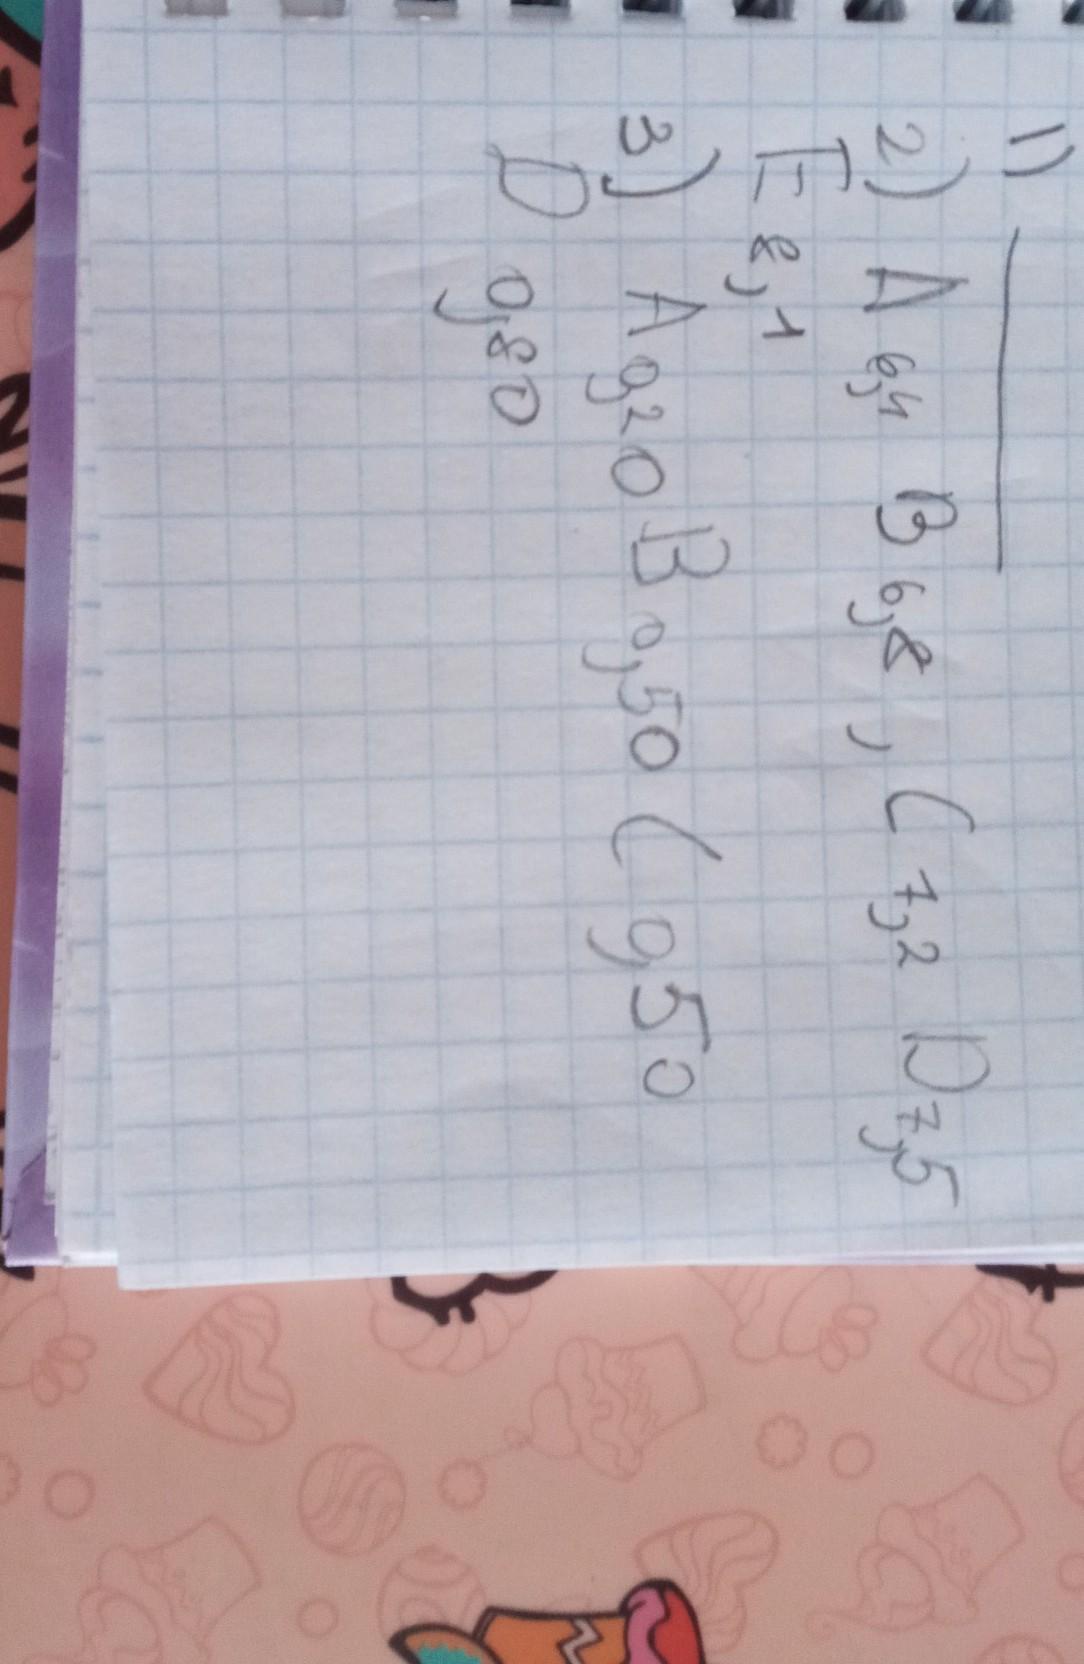 1)
2) A 6,4 B 6,8 , C 7,2 D 7,5
E 8,1
3) A 0,20 B 0,50 C 0,50
D 0,80